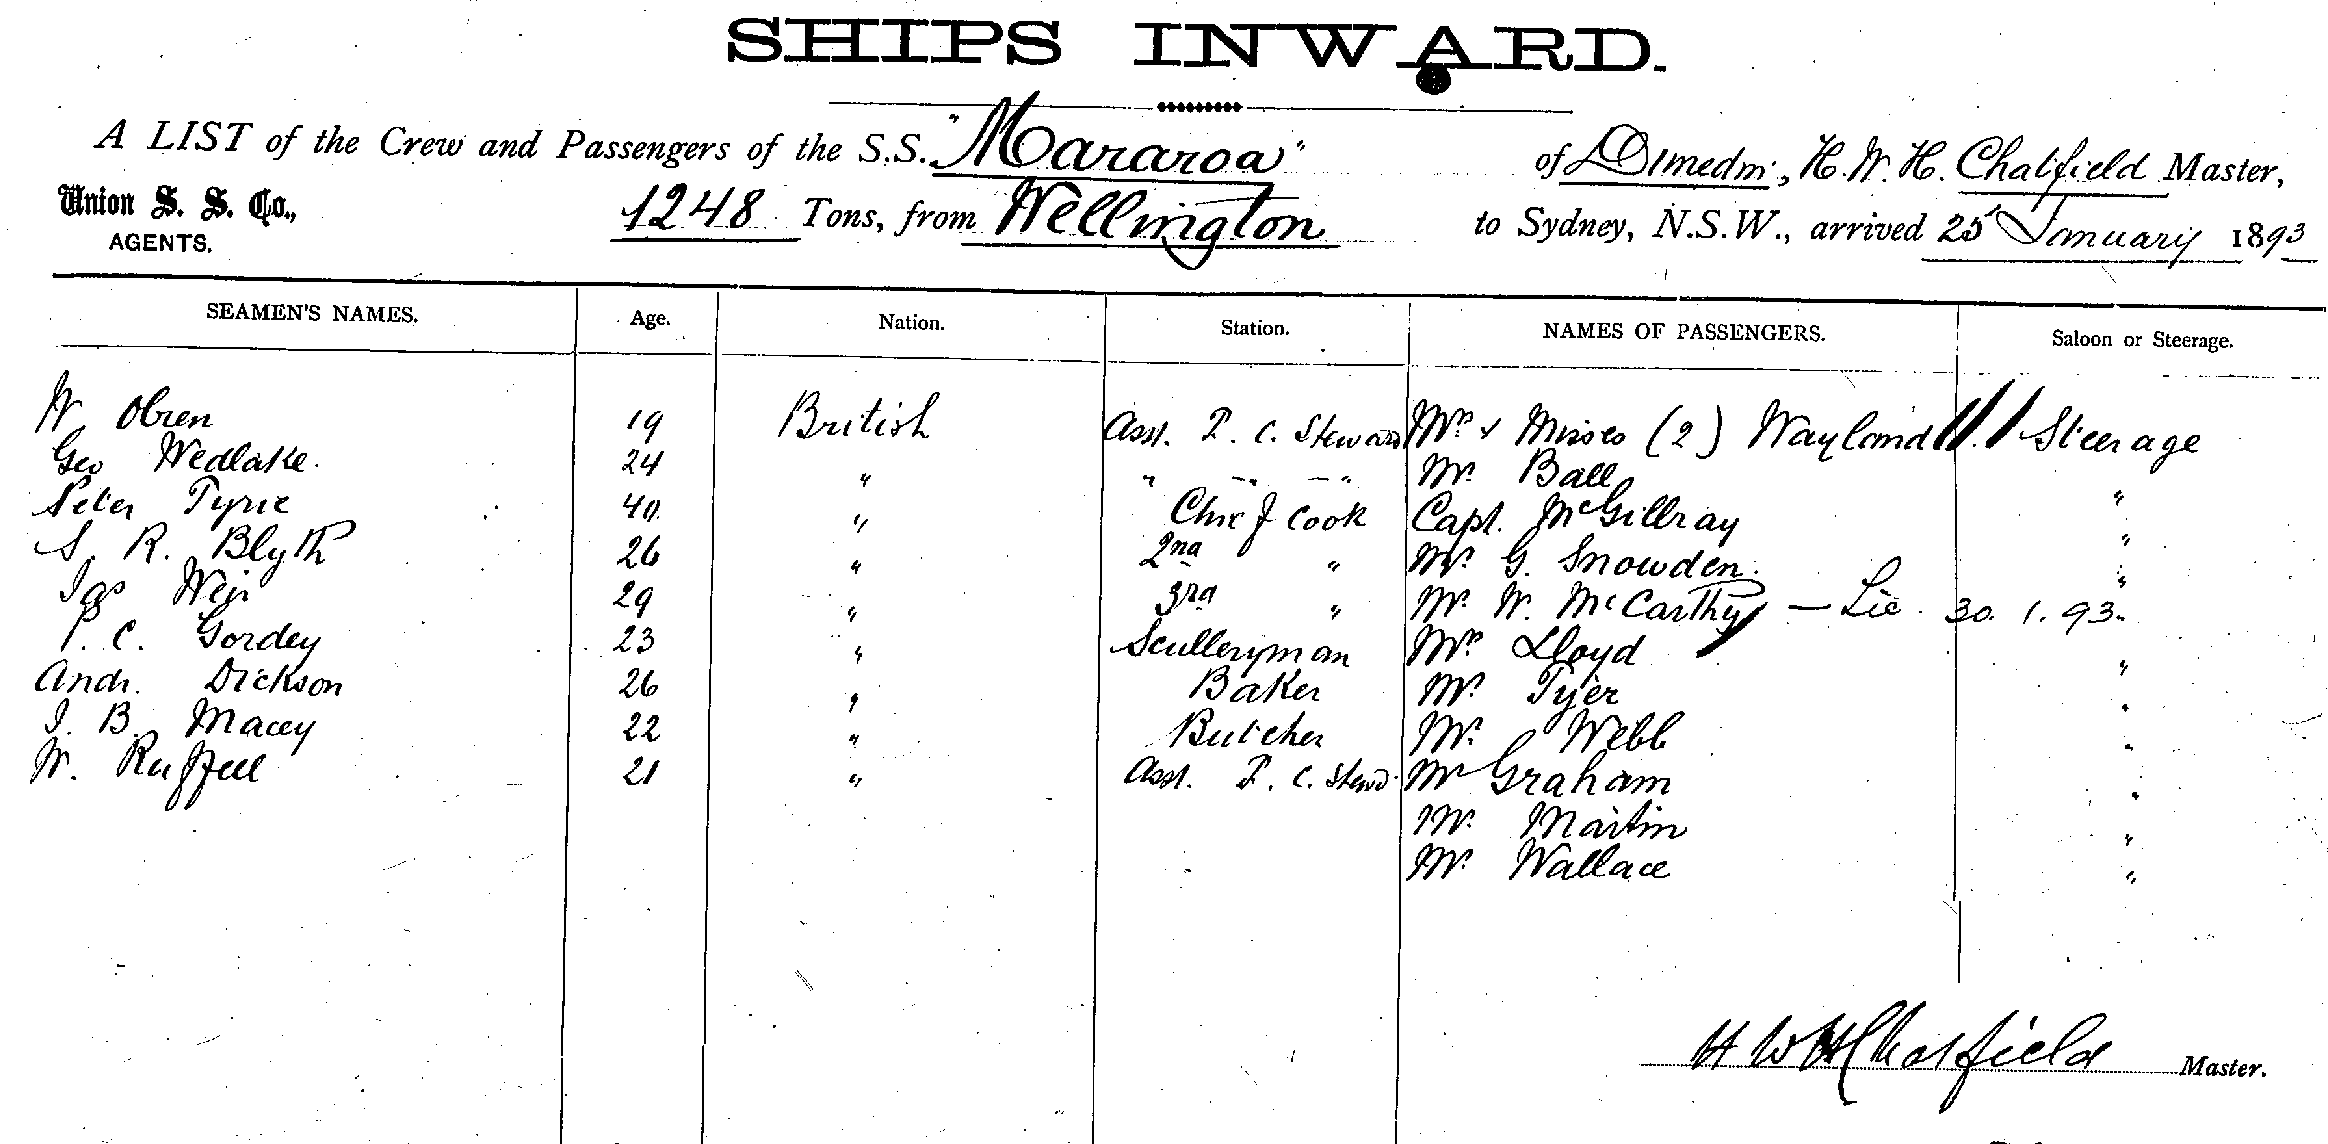 SHIPS INWARD.
A LIST of the Crew and Passengers of the S.S. "Mararoa" of Dunedin, H. W. H. Chatfield Master,
Union S. S. Co., 1248 Tons, from Wellington to Sydney, N.S.W., arrived 25 January 1893
AGENTS.
SEAMEN'S NAMES. Age. Nation. Station. NAMES OF PASSENGERS. Saloon or Steerage.
W Obren 19 British Asst. P. C. Steward Mrs & Misses (2) Wayland Steerage
Geo Wedlake. 24 " " " " Mr Ball "
Peter Tyrie 40 " Chief Cook Capt. McGillray "
S. R. Blyth 26 " 2nd " Mr. G. Snowden. "
Jas Weir 29 " 3rd " Mr. W. McCarthy — Lie. 30. 1. 93.
P. C. Gordey 23 " Sculleryman Mrs Lloyd "
Andr. Dickson 26 " Baker Mr. Tyer "
J. B. Macey 22 " Butcher Mr. Webb "
W. Ruffell 21 " Asst. P. C. Stewd Mr Graham "
Mr. Martin "
Mr. Wallace "
H W H Chatfield Master.